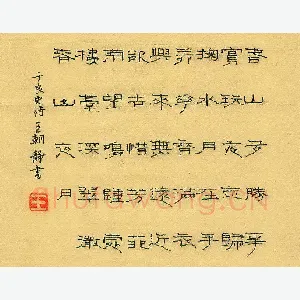 春山多勝事
賞玩夜忘歸
掬水月在手
弄花香滿衣
興來無遠近
欲去惜芳菲
南望鳴鐘處
樓臺深翠微
春山夜月
于良史詩 王朝靜書
shufawang.cn